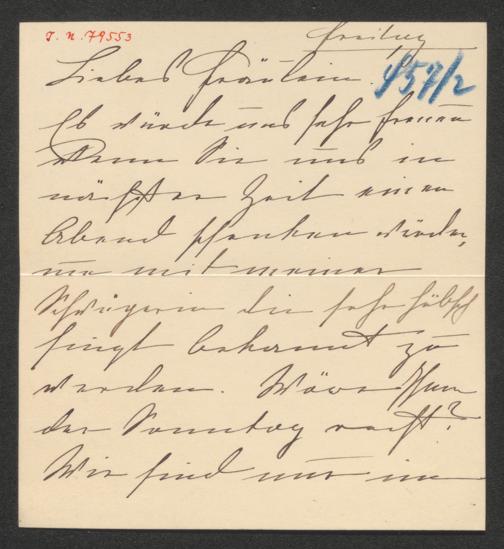 I. N. 79553
Freitag
957/2
Liebes Fräulein.
Es würde uns sehr freuen
wenn Sie uns in
nächster Zeit einen
Abend schenken würden,
um mit meiner
Schwägerin die sehr hübsch
singt bekannt zu
werden. Wäre Ihnen
der Sonntag recht?
Wir sind nur im